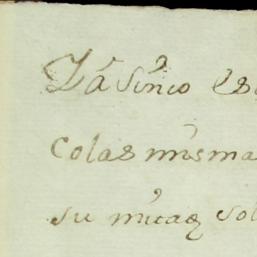 Ya sinco es
colas misma
su mitad sol